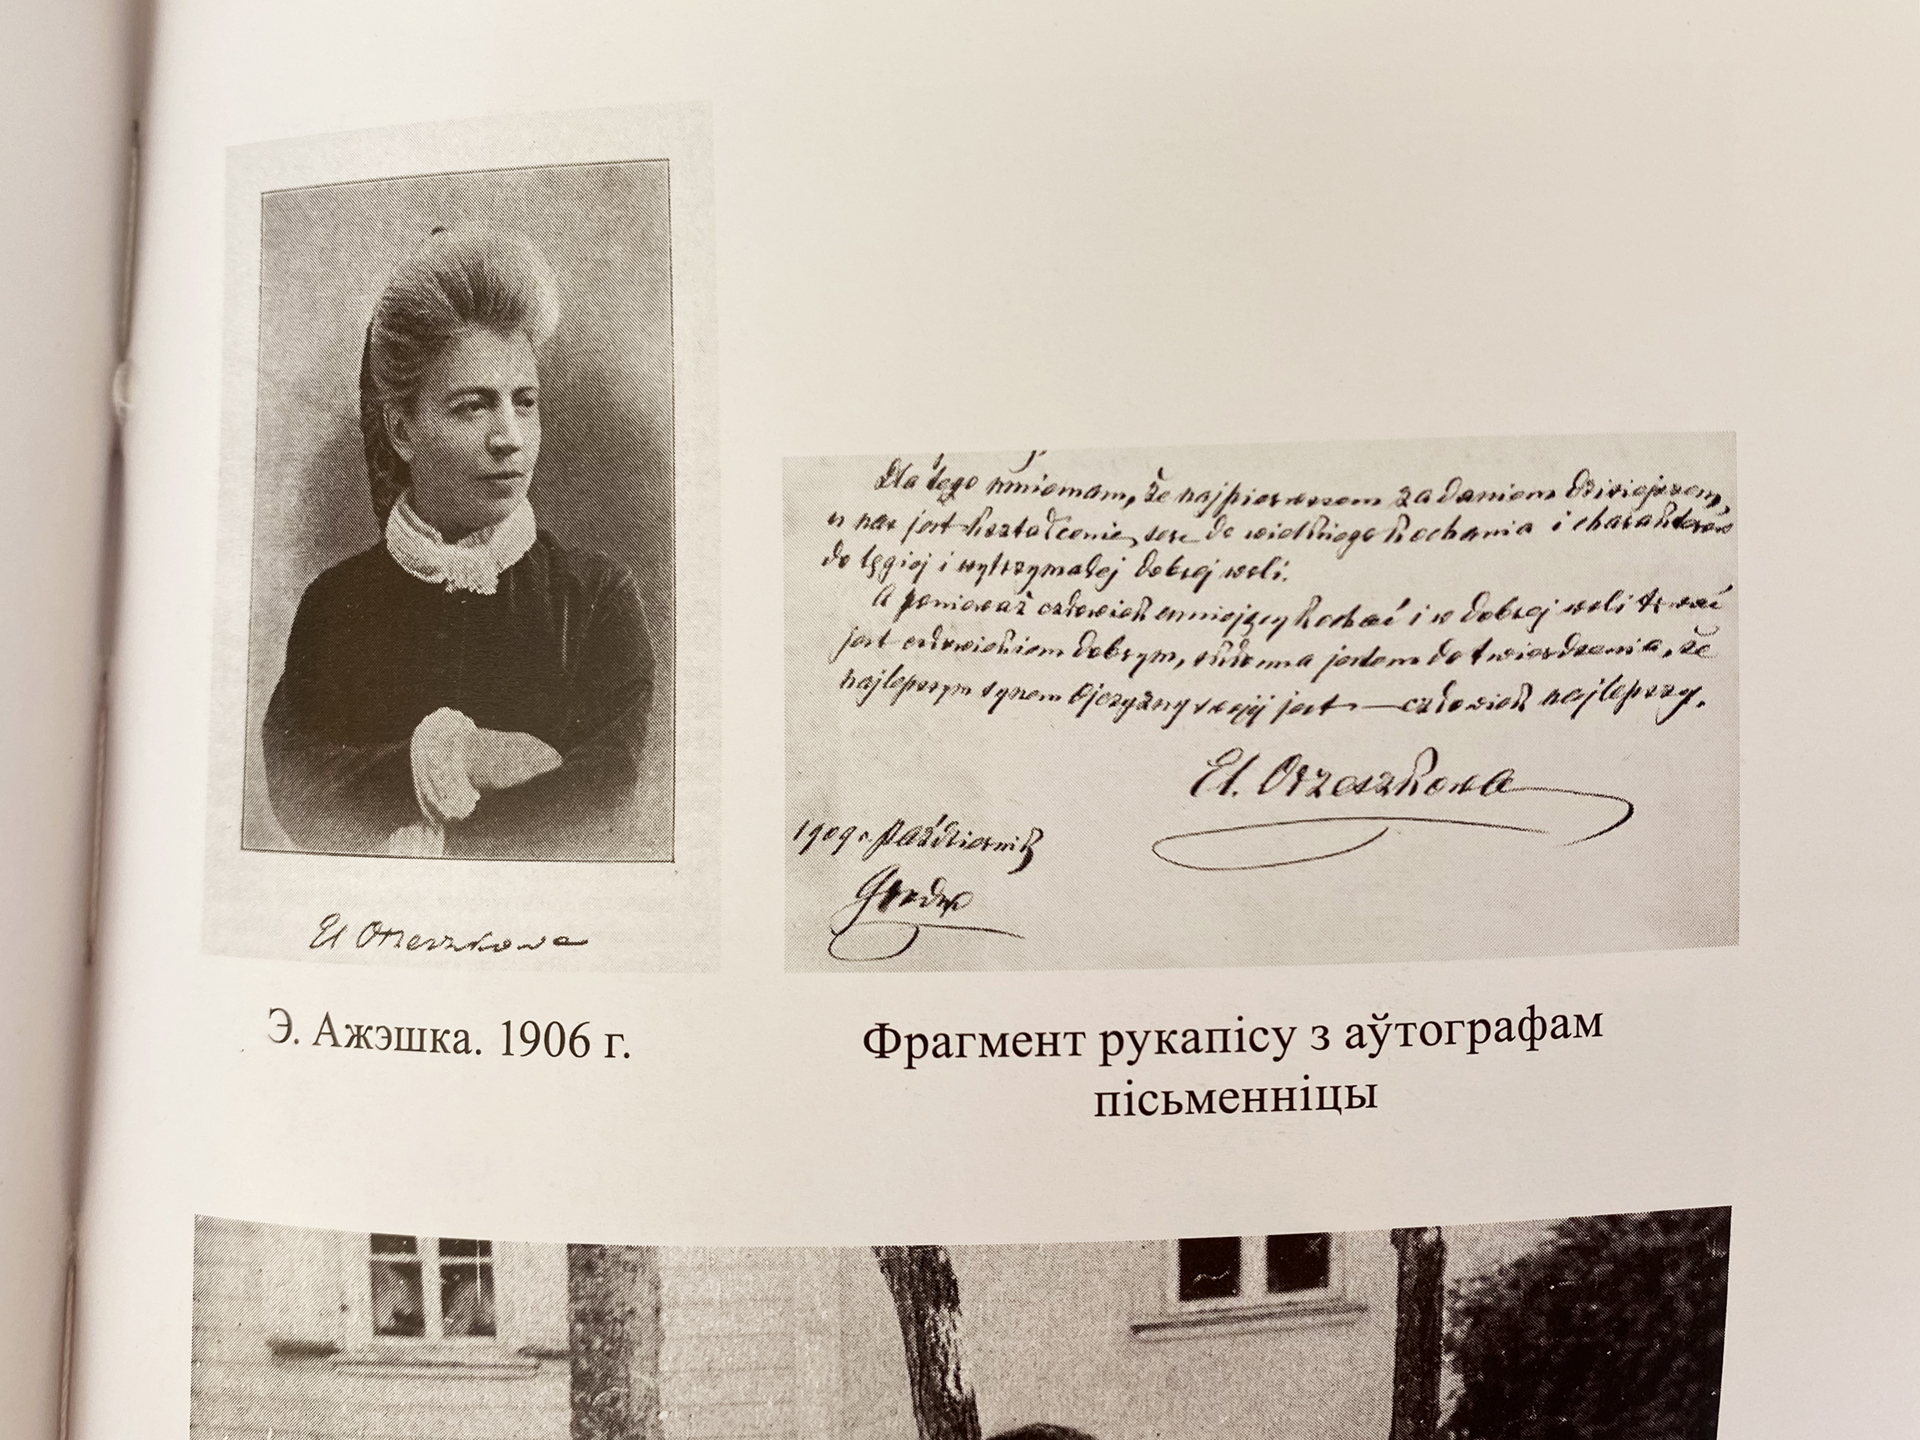 El Orzeszkowa
Э. Ажэшка. 1906 г.
Dla tego mniemam, że najpierwszem zadaniem dzisiejszem,
u nas jest kształcenie serc do wielkiego kochania i charakterów
do tęgiej i wytrzymałej dobrej woli.
A ponieważ człowiek umiejący kochać i w dobrej woli trwać
jest człowiekiem dobrym, skłonna jestem do twierdzenia, że
najlepszym synem Ojczyzny swojéj jest — człowiek najlepszy.
El. Orzeszkowa
1909 r. Październik
Grodno
Фрагмент рукапісу з аўтографам
пісьменніцы